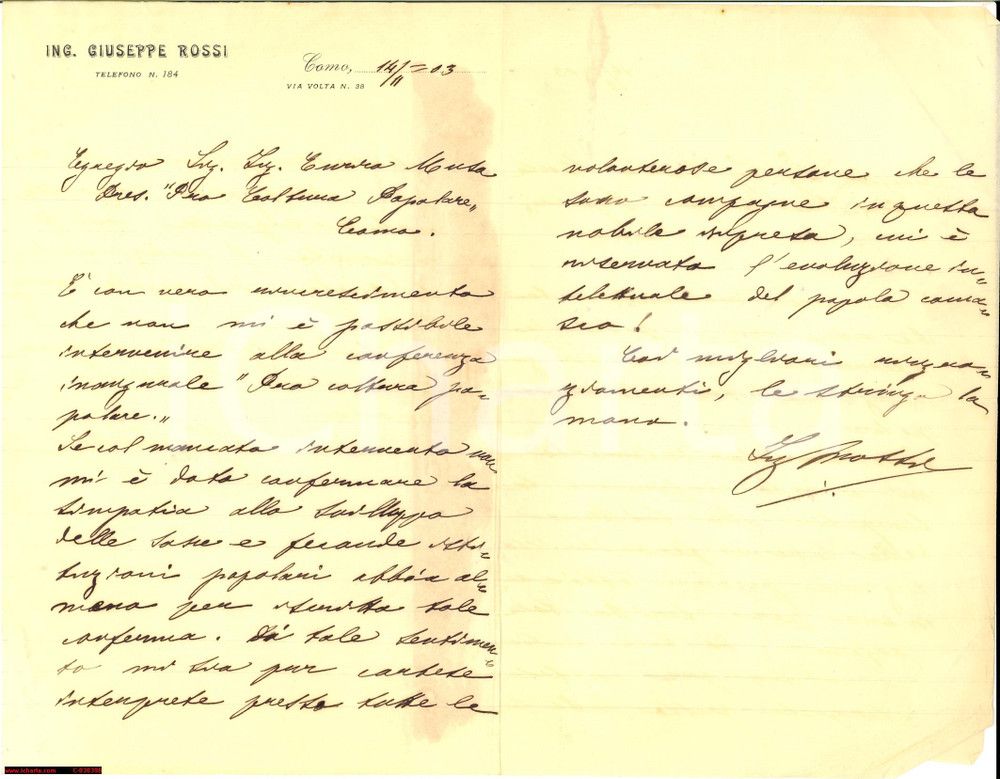 ING. GIUSEPPE ROSSI
TELEFONO N. 184
Como, 14/11 = 03
VIA VOLTA N. 38
Egregio Sig. Ing. Enrico Musa
Pres. "Pro Coltura Popolare"
Como.
E' con vero rincrescimento
che non mi è possibile
intervenire alla conferenza
inaugurale "Pro coltura po=
polare."
Se col mancato intervento non
mi è dato confermare la
simpatia allo sviluppo
delle sane e feconde isti=
tuzioni popolari abbia al=
meno per iscritto tale
conferma. Di tale sentimen=
to mi sia pur cortese
interprete presso tutte le
volonterose persone che le
sono compagne in questa
nobile impresa, cui è
riservato l'evoluzione in=
telettuale del popolo coma=
sco!
Coi migliori ringra=
ziamenti, le stringo la
mano.
Ing Rossi
lcharta
www.lcharta.com